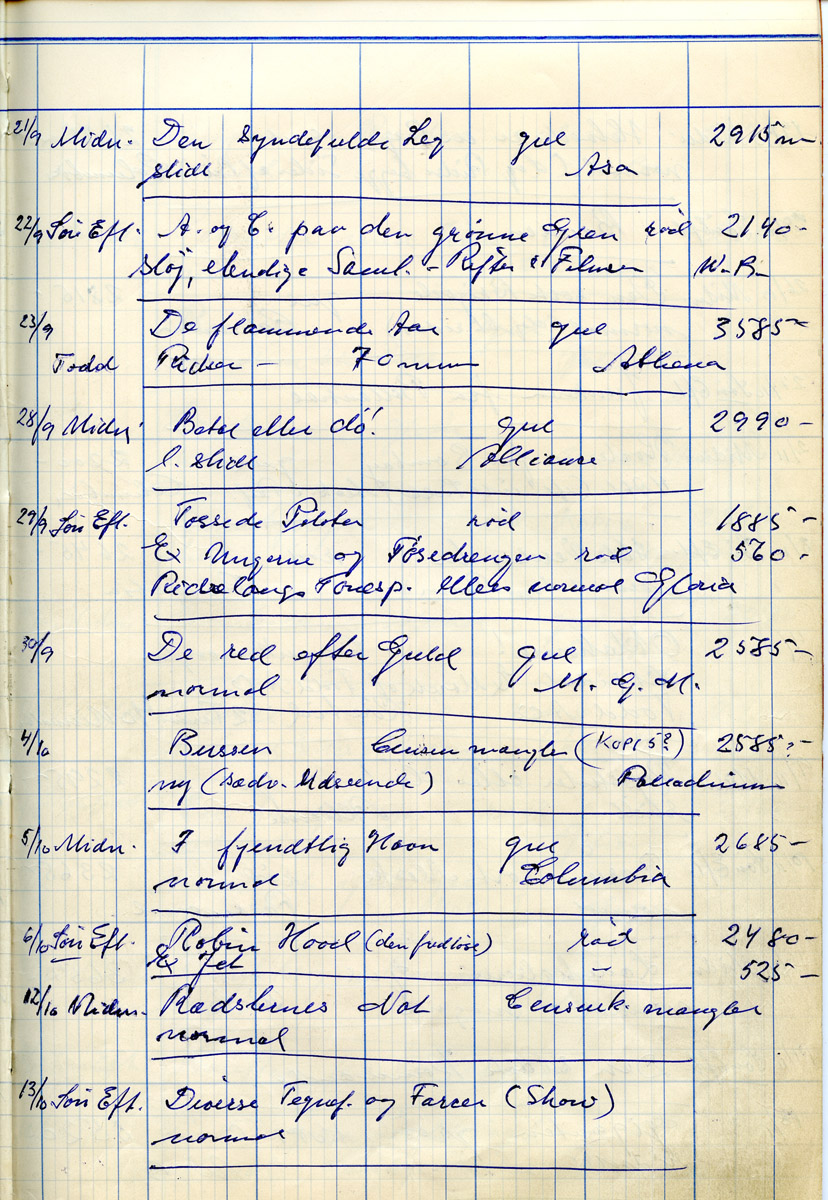 21/9 Midn. Den syndefulde Leg gul 2915 m
slidt Asa
22/9 Søn Eft. A. og C. paa den grønne Gren rød 2140-
sløj, elendige Saml. - Rifter i Filmen W.B.
23/9 De flammende Aar gul 3585-
Todd 70 mm Athena
28/9 Midn. Betal eller dø! gul 2990-
l. slidt Alliance
29/9 Søn Eft. Tossede Piloter rød 1885-
Ex Ungerne og Tøsedrengen rød 560-
Tonesp. Ellers normal Gloria
30/9 De red efter Guld gul 2585-
normal M.G.M.
4/10 Bussen mangler (KOPI 5?) 2585?-
ny (sædv. Udseende) Palladium
5/10 Midn. I fjendtlig Havn gul 2685-
normal Columbia
6/10 Søn Eft. Robin Hood (den fredløse) rød 2480-
Ex Jet - 525-
12/10 Midn. Rædslernes Nat mangler
normal
13/10 Søn Eft. Diverse Tegnef. og Farcer (Show)
normal